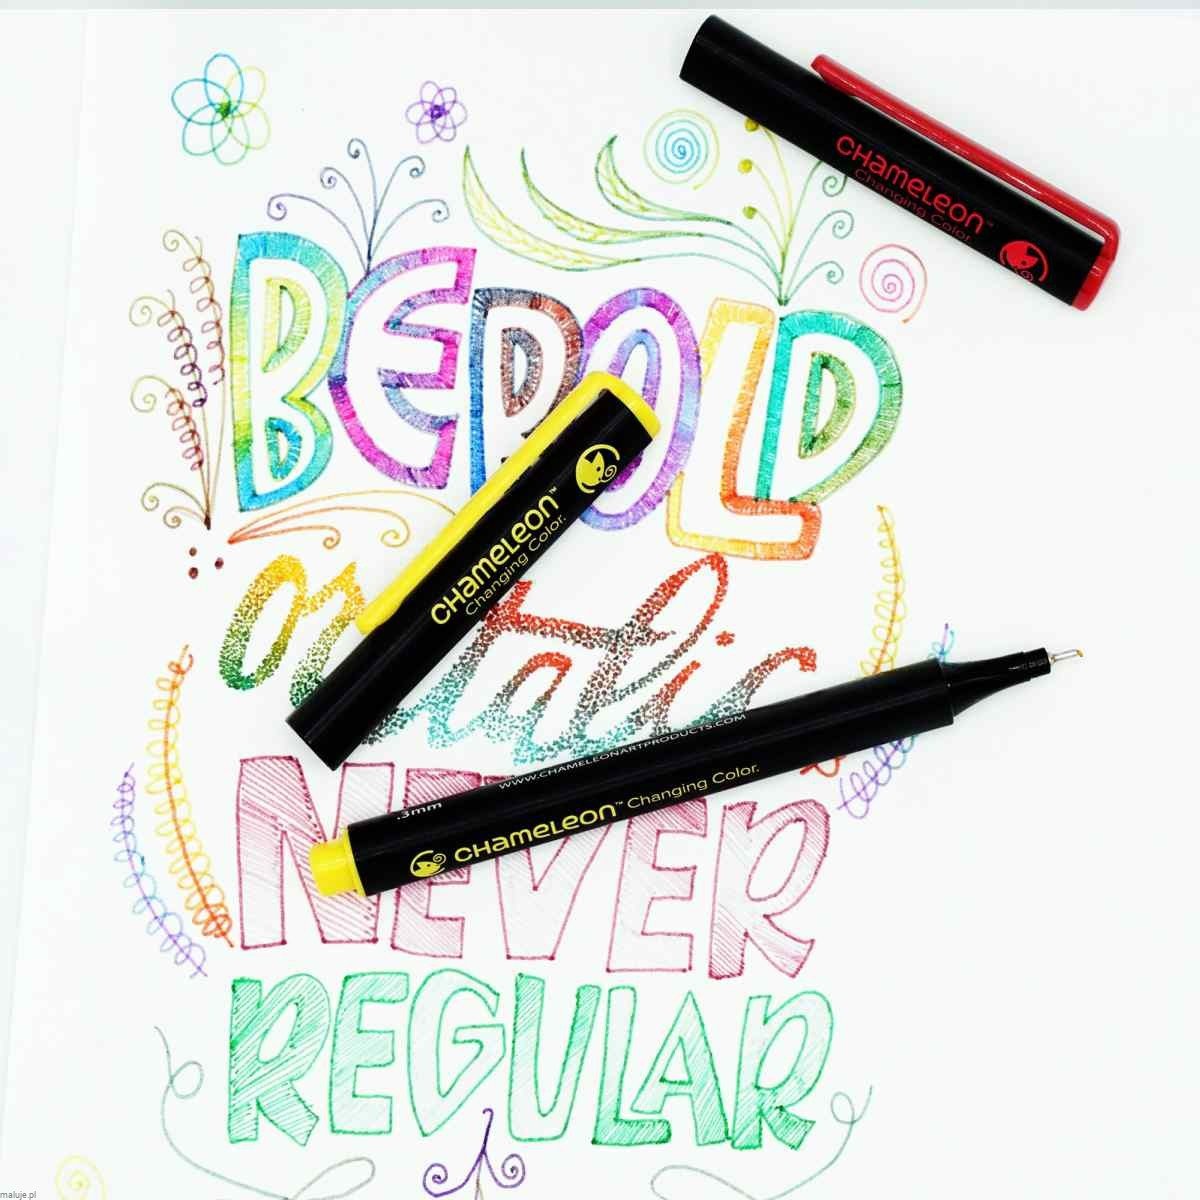 CHAMELEON™
Changing Color.
BE BOLD
or italic
CHAMELEON™
Changing Color.
WWW.CHAMELEONARTPRODUCTS.COM
.3mm
CHAMELEON™ Changing Color.
NEVER
REGULAR
maluje.pl